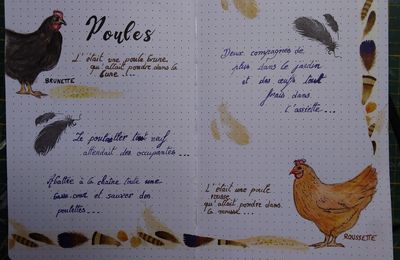 Poules
L'était une poule brune
qu'allait pondre dans la
lune...
BRUNETTE
Le poulailler tout neuf
attendait des occupantes...
Abattre à la chaîne toute une
basse-cour et sauver des
poulettes...
Deux compagnes de
plus dans le jardin
et des œufs tout
frais dans
l'assiette...
L'était une poule
rousse
qu'allait pondre dans
la mousse...
ROUSSETTE